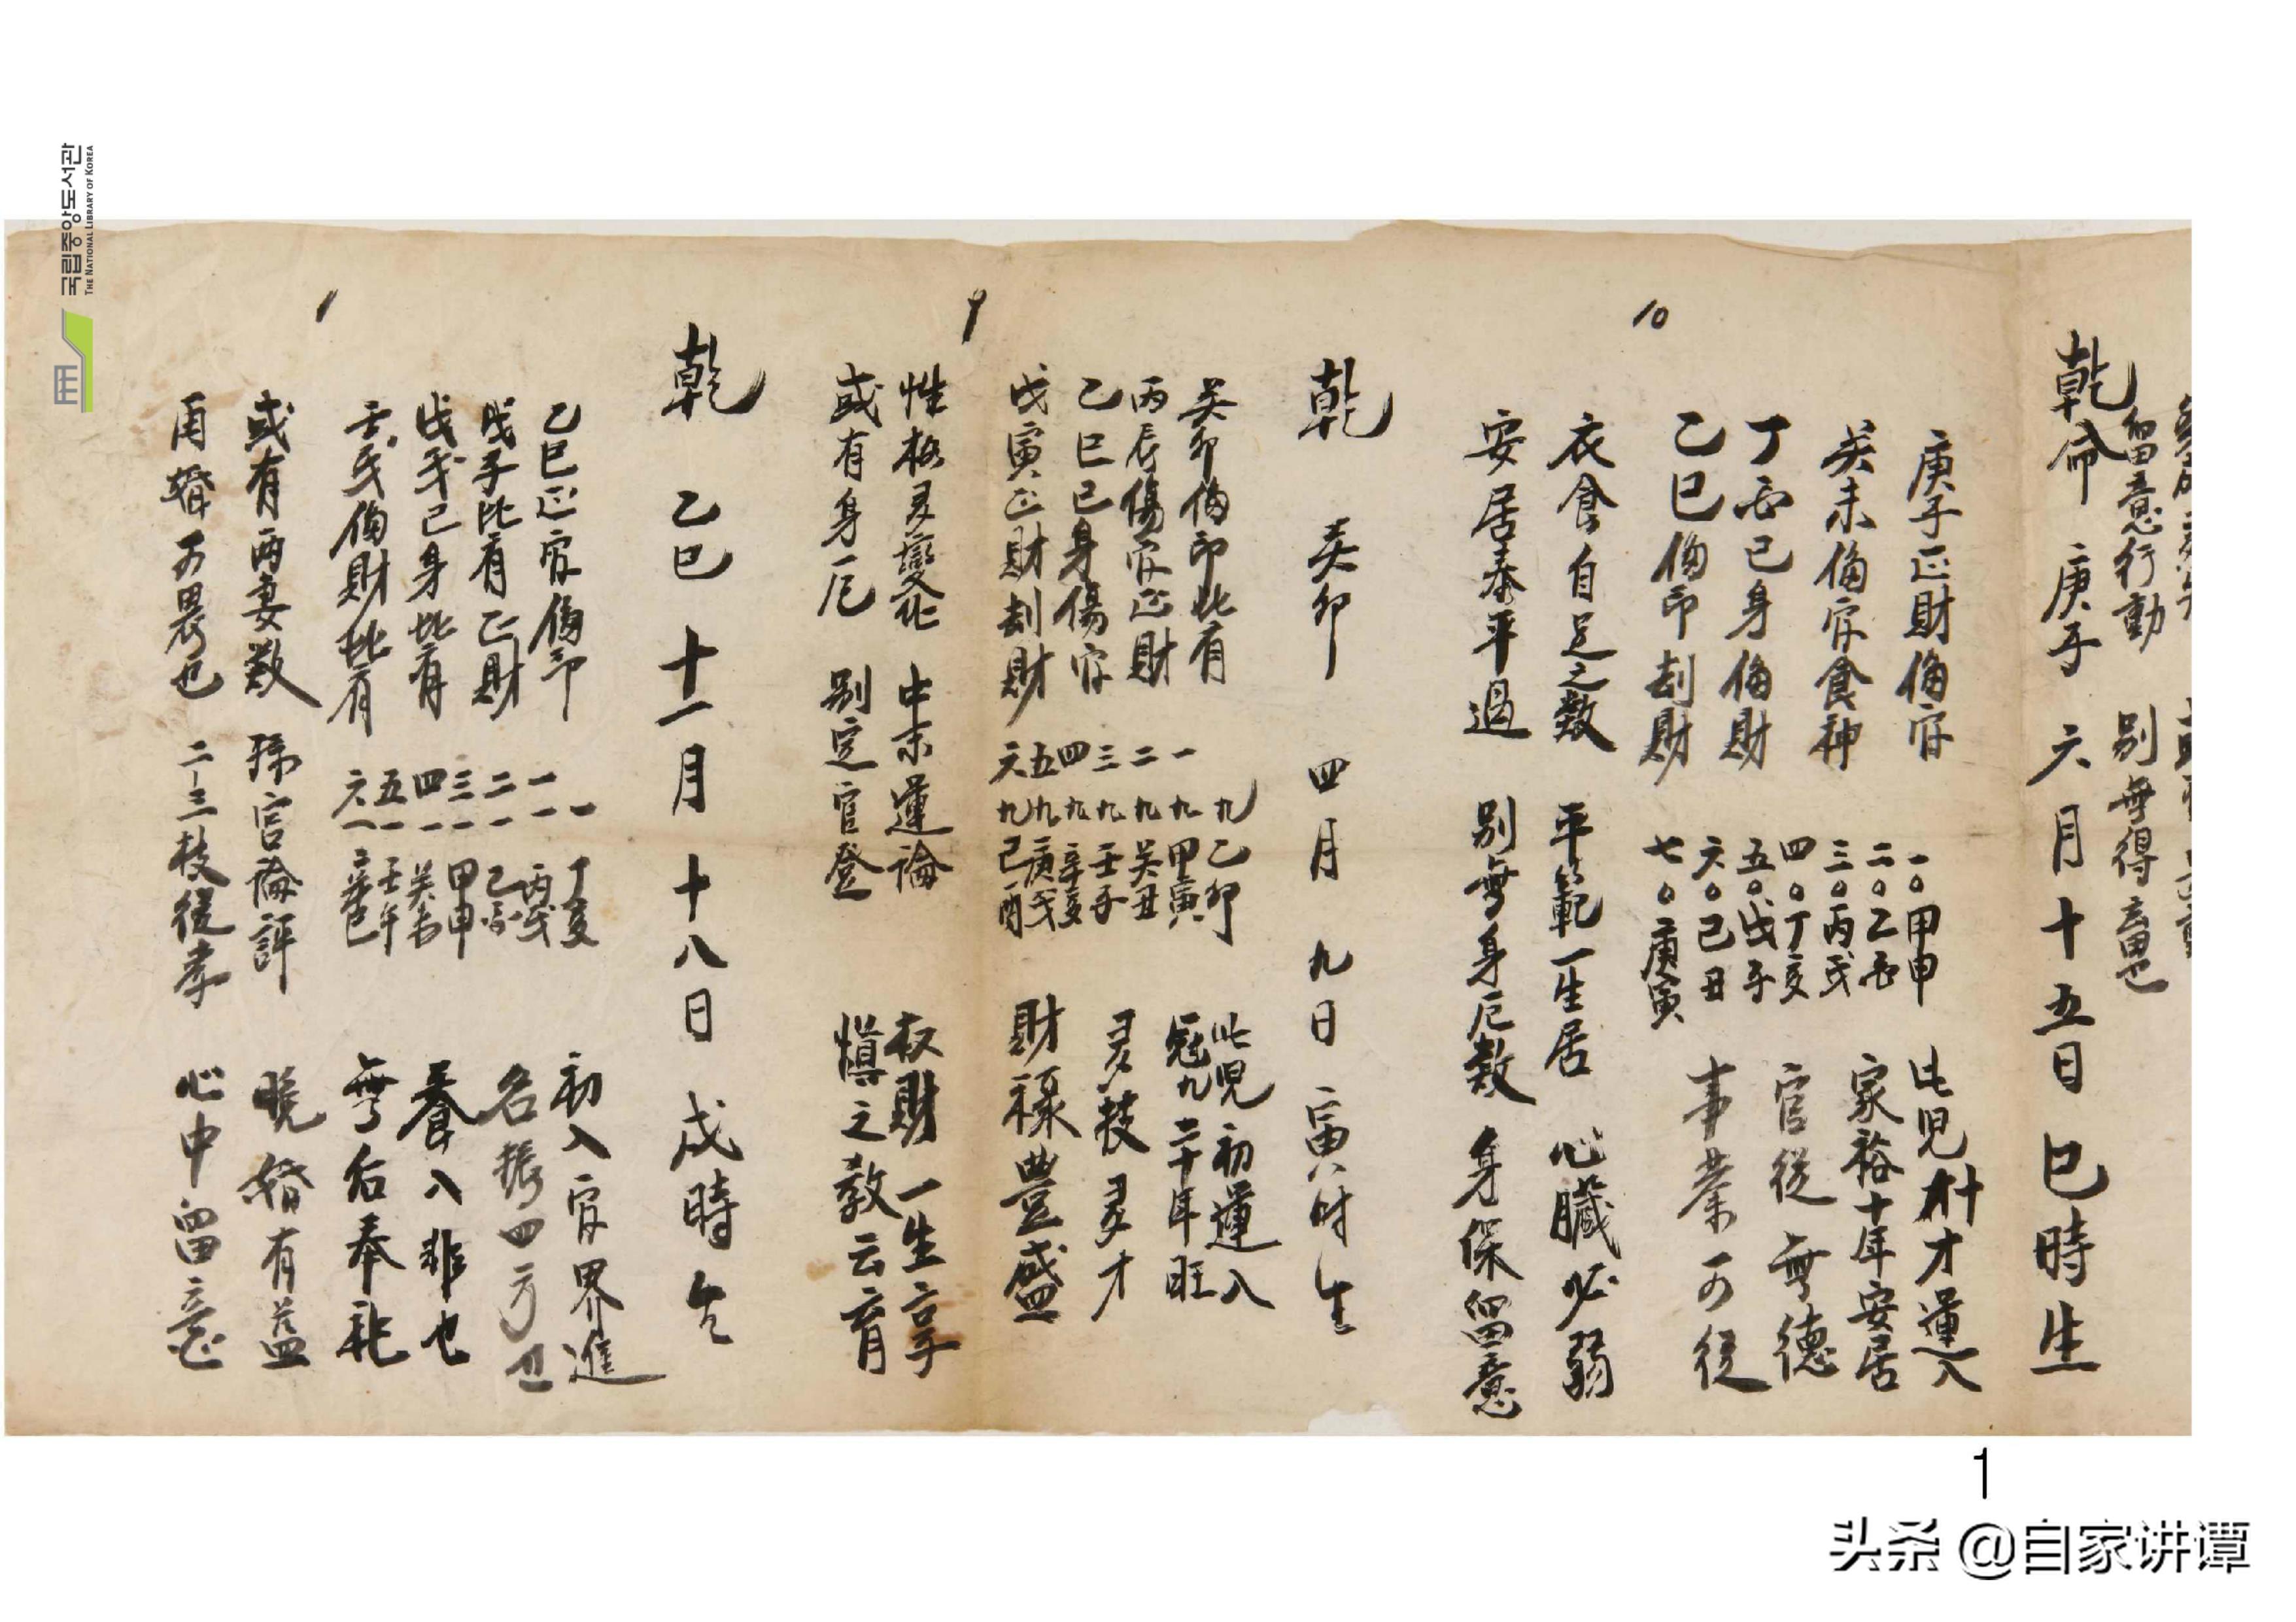 留意行動 別無得意也
乾命 庚子 六月 十五日 巳時生
庚子正財偏官
癸未偏官食神
丁酉己身偏財
乙巳偏印刦財
一〇甲申
二〇乙酉
三〇丙戌
四〇丁亥
五〇戊子
六〇己丑
七〇庚寅
此児 才運入
家裕十年安居
官從無德
事業可從
衣食自足之数 平範一生居 心臟必弱
安居泰平過 別無身厄数 身保留意
10
乾 癸卯 四月 九日 寅时生
癸卯偏印比肩
丙辰傷官正財
乙巳己身傷官
戊寅正財刦財
九乙卯
一九甲寅
二九癸丑
三九壬子
四九辛亥
五九庚戌
六九己酉
此児初運入
冠九二十年旺
多技多才
財祿豊盛
性格多變化 中末運論 权財一生享
或有身厄 別定官登 慎之教云育
9
乾 乙巳 十一月 十八日 戌時生
乙巳正官偏印
戊子比肩正財
戊戌己身比肩
壬戌偏財比肩
一丁亥
一一丙戌
二一乙酉
三一甲申
四一癸未
五一壬午
六一辛巳
初入官界進
名振四方
養入非也
無后奉祀
或有両妻数 孫官論評 晚婚有益
再婚可畏也 二三枝從孝 心中留意
국립중앙도서관
THE NATIONAL LIBRARY OF KOREA
1
头条 @自家讲谭